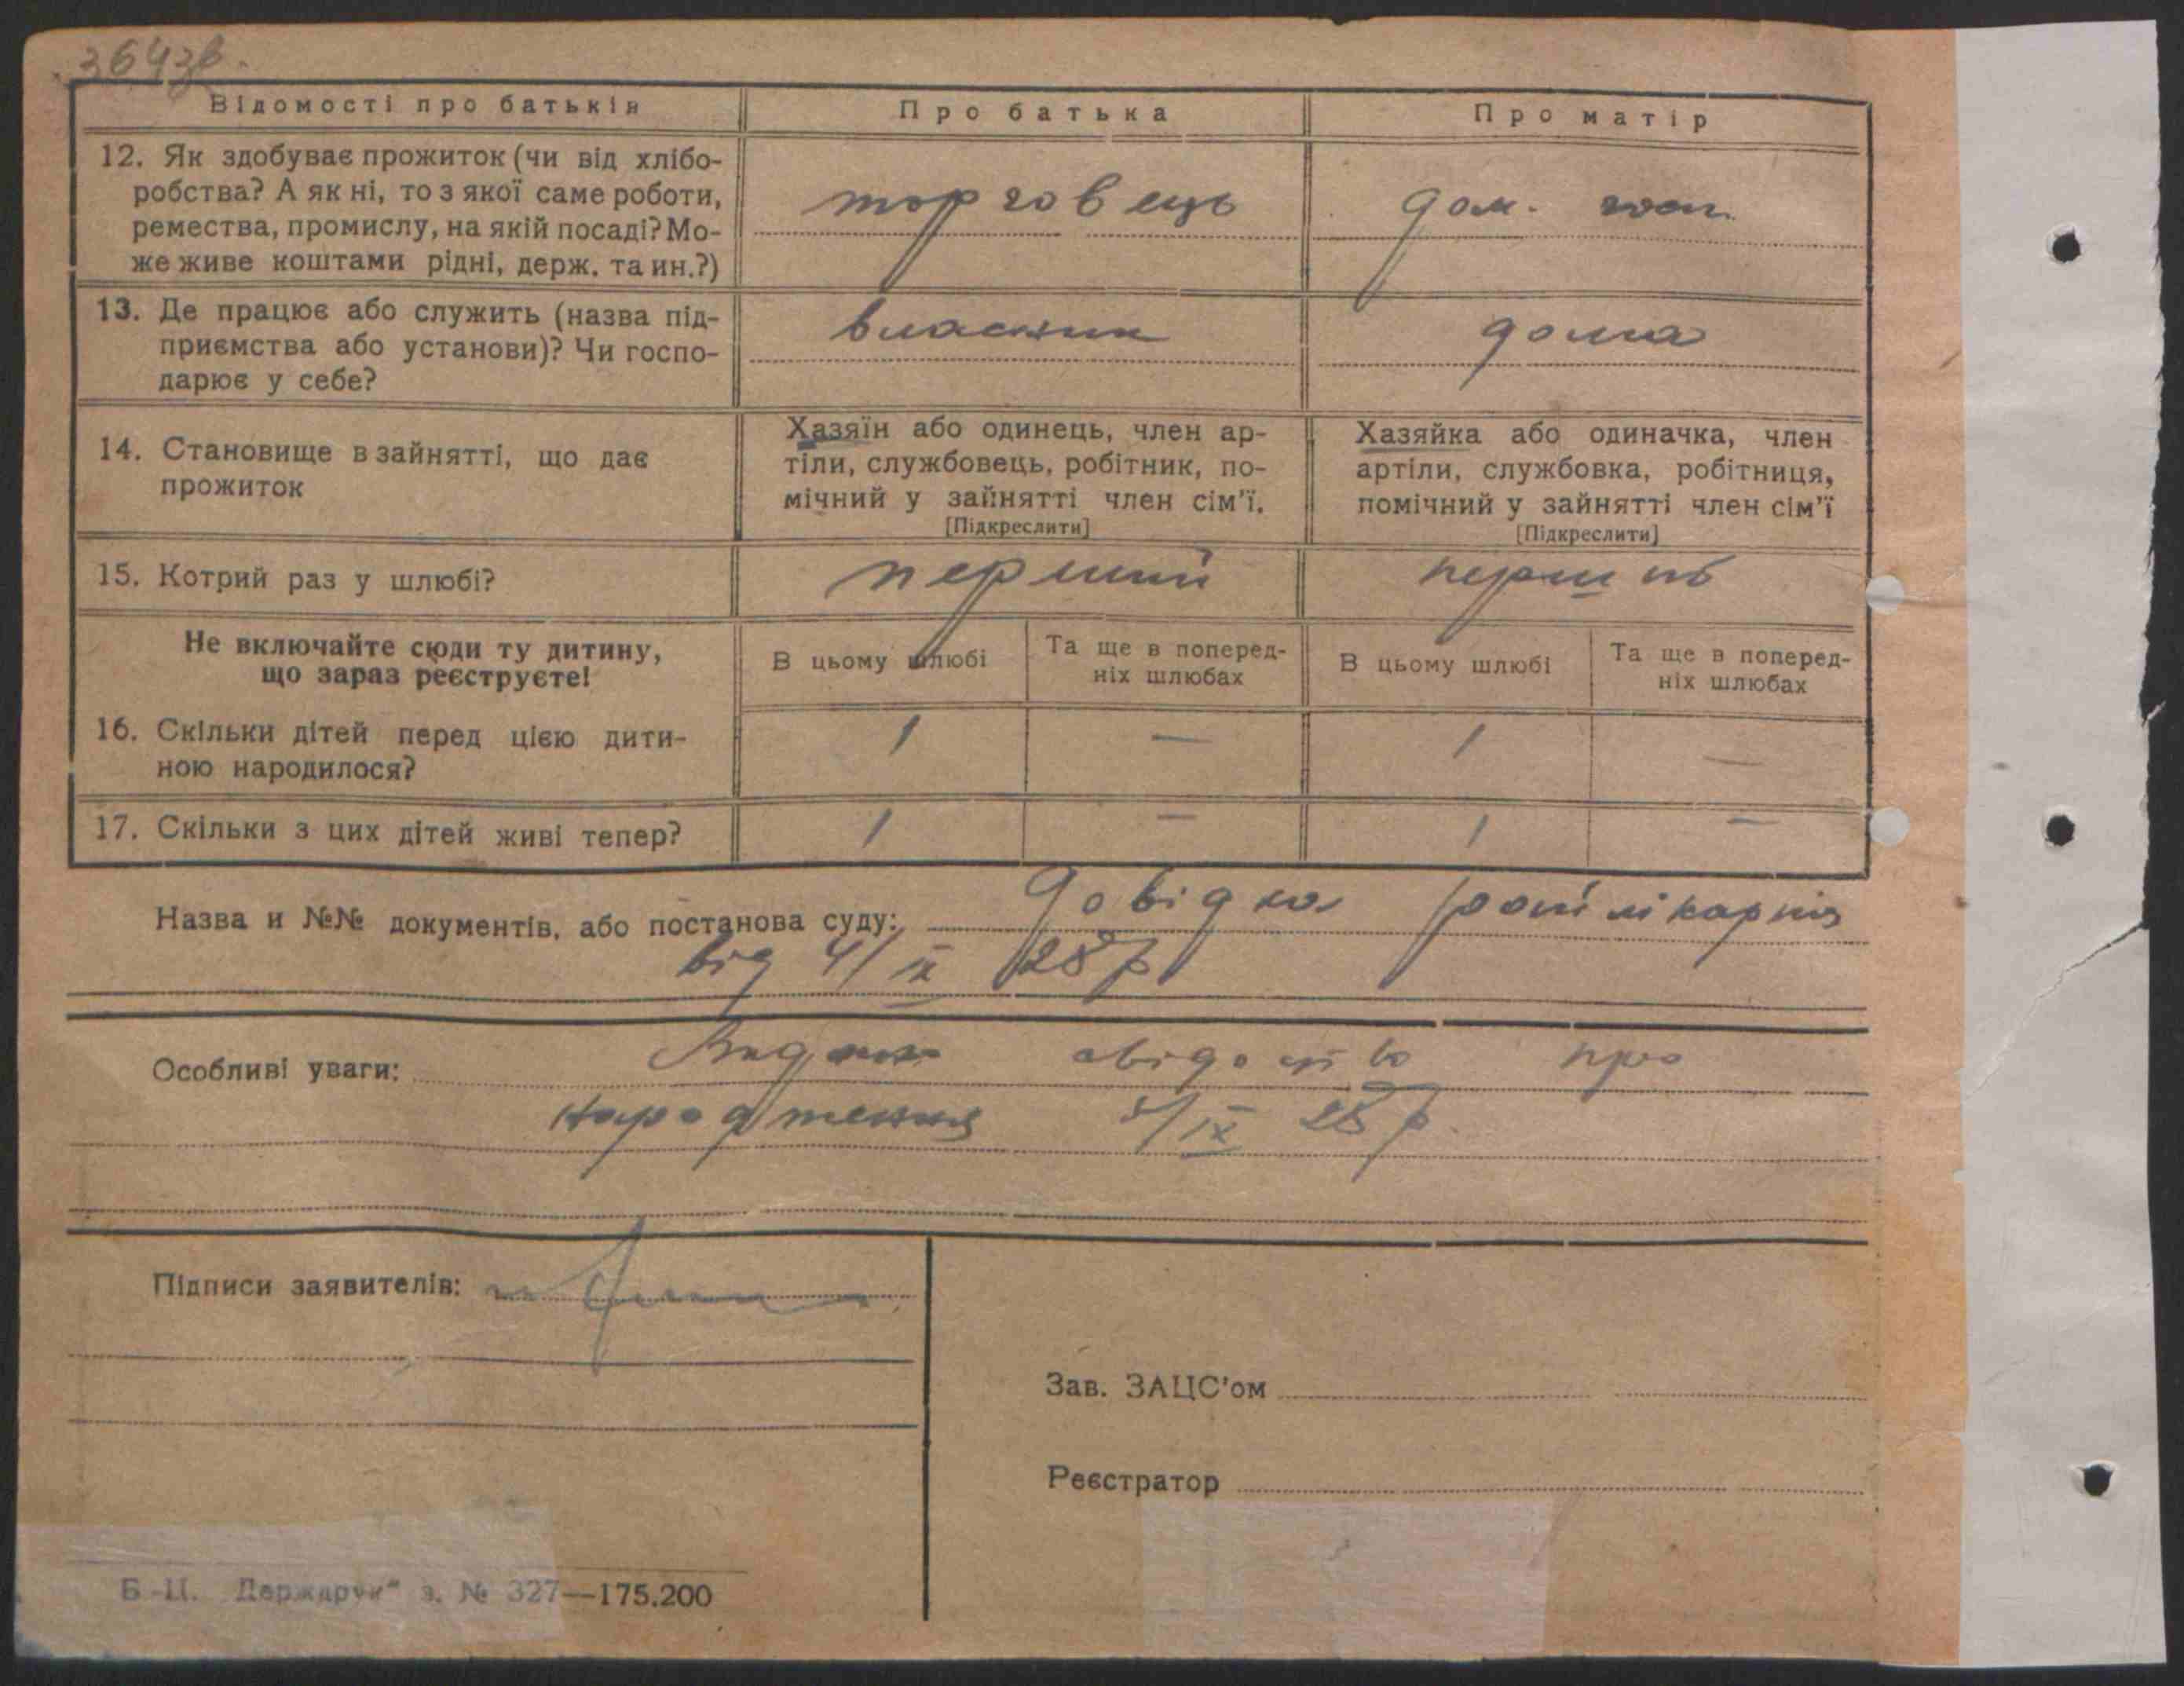 364зв.
Відомості про батьків
Про батька
Про матір
12. Як здобуває прожиток (чи від хлібо-
робства? А як ні, то з якої саме роботи,
ремества, промислу, на якій посаді? Мо-
же живе коштами рідні, держ. та ин.?)
торговець
дом. госп.
13. Де працює або служить (назва під-
приємства або установи)? Чи госпо-
дарює у себе?
власник
дома
14. Становище в зайнятті, що дає
прожиток
Хазяїн або одинець, член ар-
тіли, службовець, робітник, по-
мічний у зайнятті член сім'ї.
[Підкреслити]
Хазяйка або одиначка, член
артіли, службовка, робітниця,
помічний у зайнятті член сім'ї
[Підкреслити]
15. Котрий раз у шлюбі?
перший
перший
Не включайте сюди ту дитину,
що зараз реєструєте!
В цьому шлюбі
Та ще в поперед-
ніх шлюбах
В цьому шлюбі
Та ще в поперед-
ніх шлюбах
16. Скільки дітей перед цією дити-
ною народилося?
1 — 1 —
17. Скільки з цих дітей живі тепер?
1 — 1 —
Назва и №№ документів, або постанова суду: Довідка лікарні
від 4/IX 28р
Особливі уваги: Видано свідоцтво про
народження 5/IX 28 р.
Підписи заявителів:
Зав. ЗАЦС'ом
Реєстратор
Б.-Ц. „Держдрук“ з. № 327—175.200